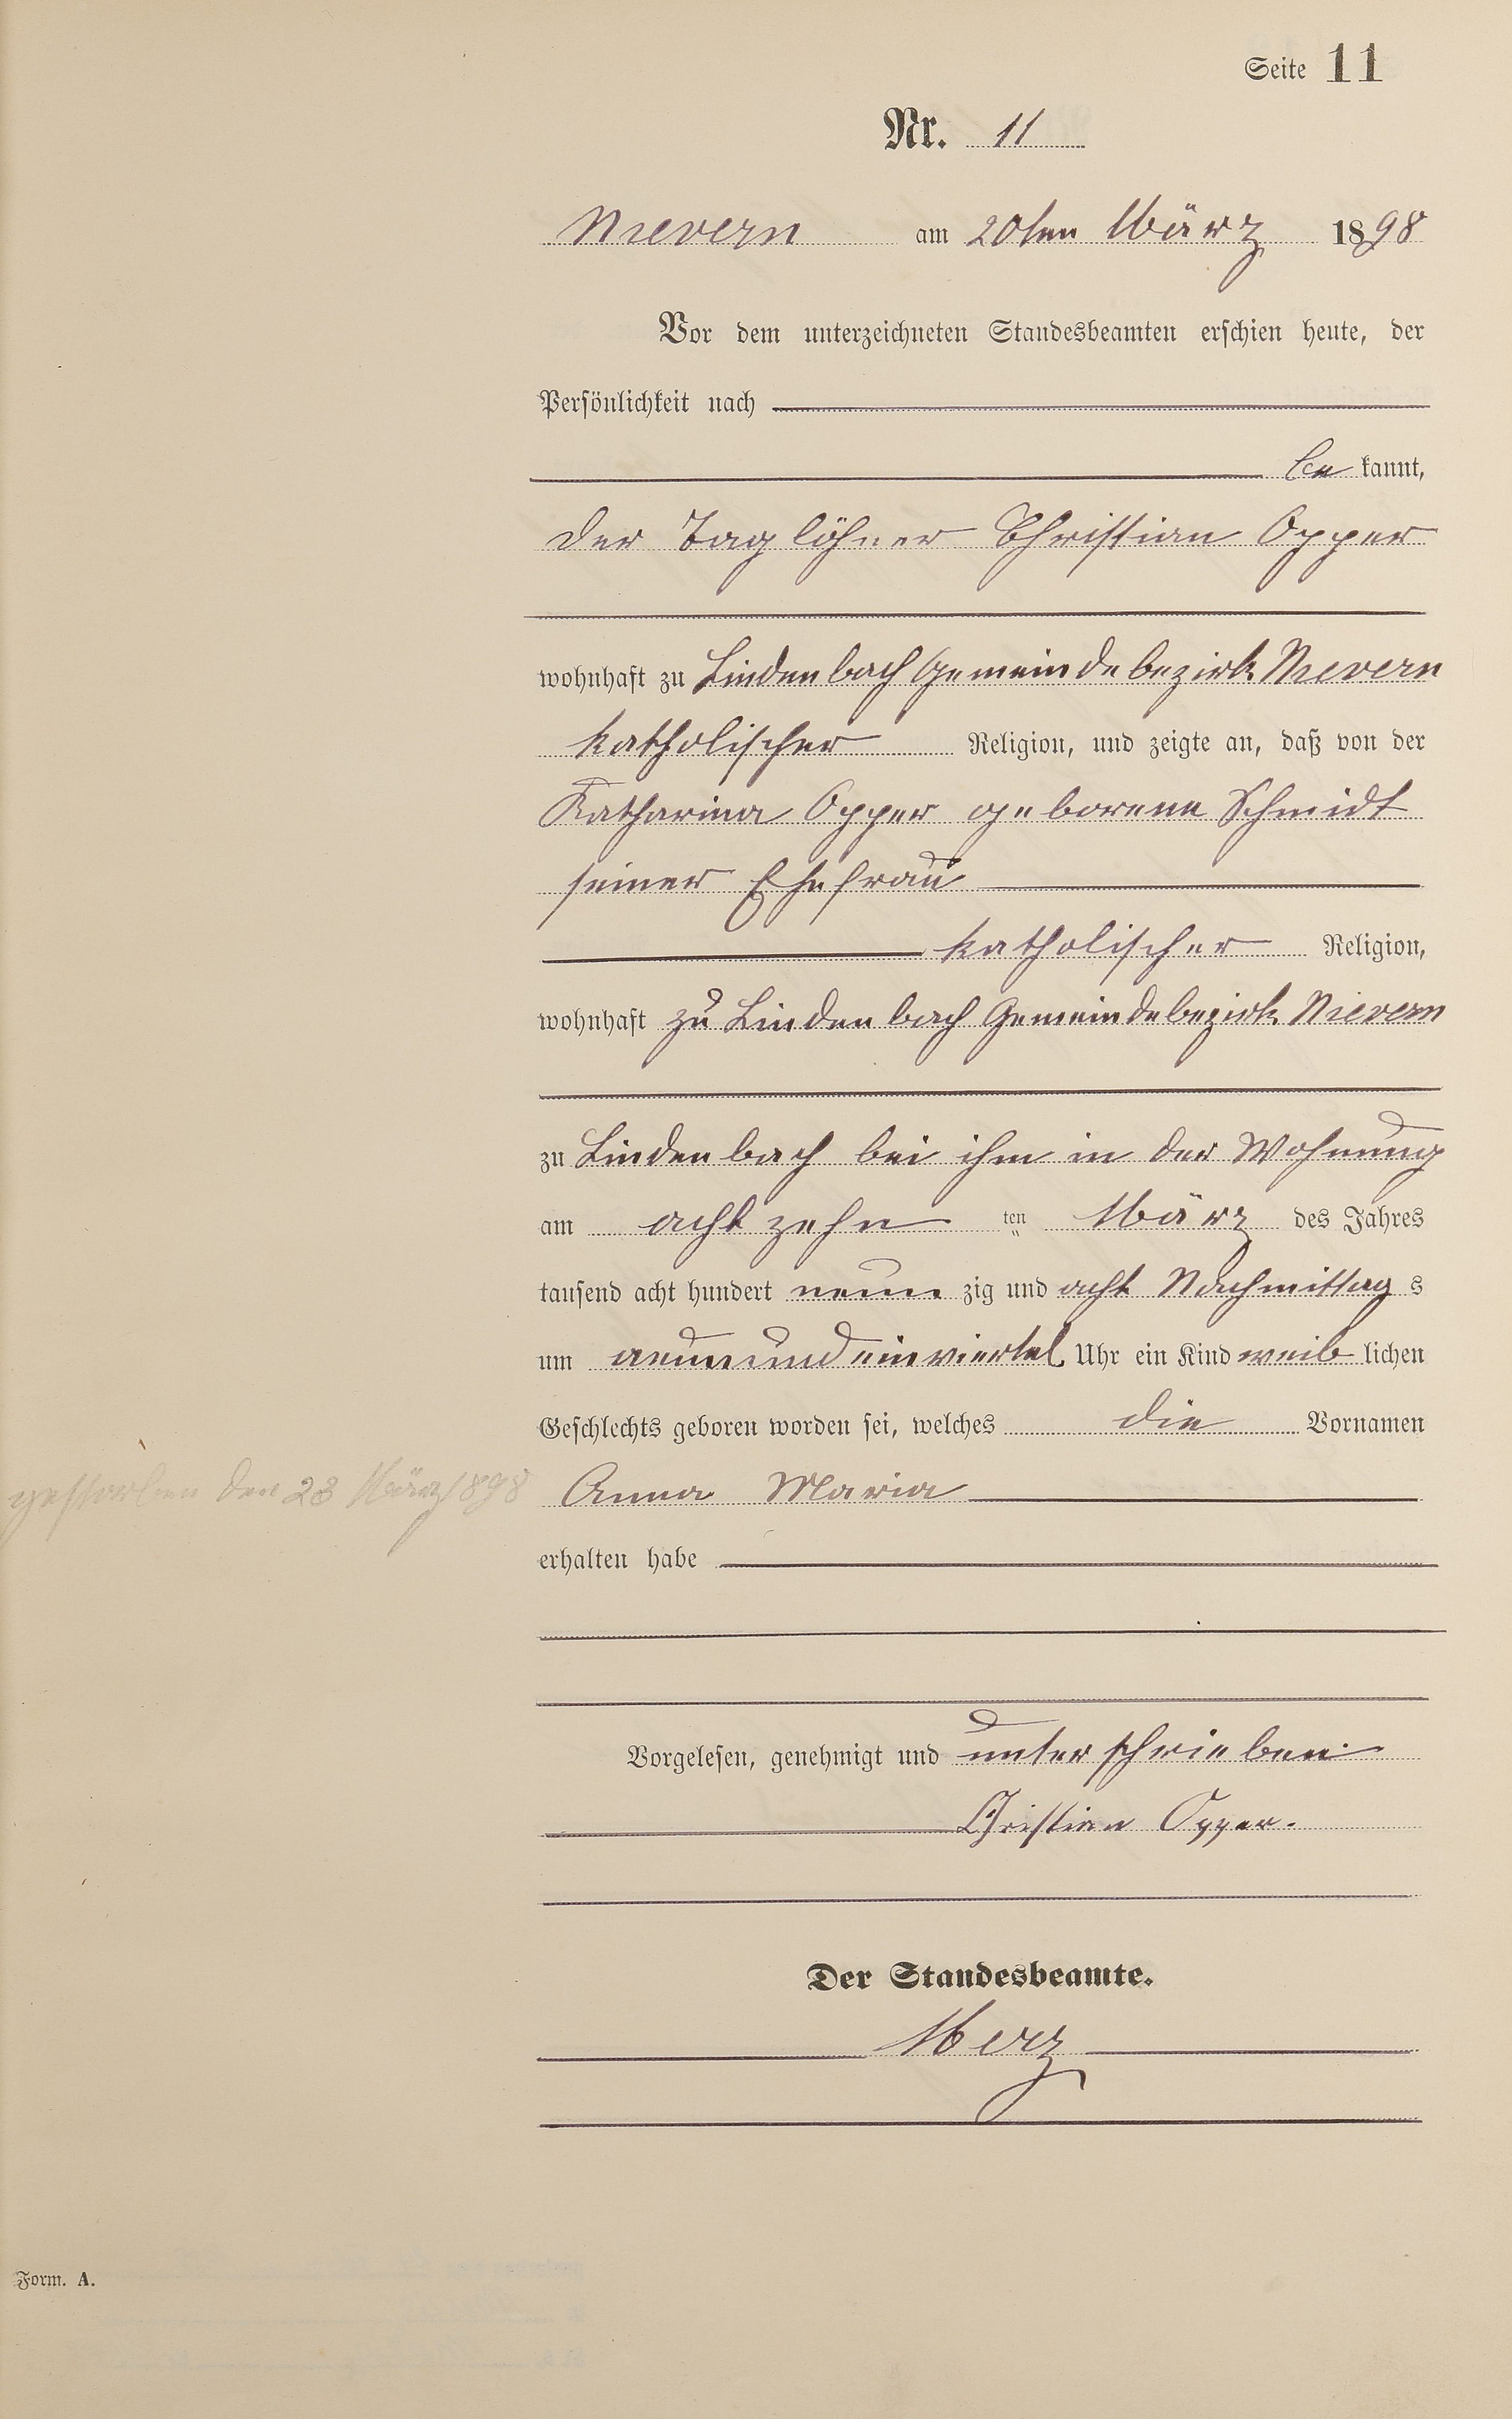 Seite 11
Nr. 11
Nievern am 20ten März 1898
Vor dem unterzeichneten Standesbeamten erschien heute, der
Persönlichkeit nach
be kannt,
der Taglöhner Christian Opper
wohnhaft zu Lindenbach Gemeindebezirk Nievern
katholischer Religion, und zeigte an, daß von der
Katharina Opper geborene Schmidt
seiner Ehefrau
katholischer Religion,
wohnhaft zu Lindenbach Gemeindebezirk Nievern
zu Lindenbach bei ihm in der Wohnung
am acht zehn ten März des Jahres
tausend acht hundert neun zig und acht Nachmittag s
um neun und einviertel Uhr ein Kind weib lichen
Geschlechts geboren worden sei, welches die Vornamen
gestorben den 23 März 1898
Anna Maria
erhalten habe
Vorgelesen, genehmigt und unterschrieben
Christian Opper.
Der Standesbeamte.
Merz
Form. A.